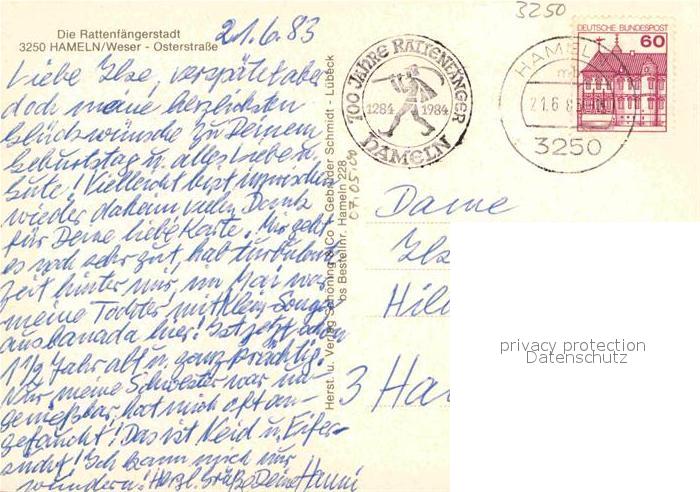 Die Rattenfängerstadt
3250 HAMELN/Weser - Osterstraße
21.6.83
Liebe Ilse, verspätet aber
doch meine herzlichsten
Glückwünsche zu Deinem
Geburtstag u. alles Liebe u.
Gute! Vielleicht bist inzwischen
wieder daheim vielen Dank
für Deine liebe Karte. Mir geht
es noch sehr gut, hab turbulente
Zeit hinter mir, im Mai war
meine Tochter mit klein.
aus Canada hier! Ist jetzt schon
1 1/2 Jahr alt u. ganz prächtig!
Nur meine Schwester war un-
genießbar, hat mich oft an-
gefaucht! Das ist Neid u. Eifer-
sucht! Ich kann mich nur
wundern! Herzl. Grüße Deine Hanni
Herst. u. Verlag Schöning & Co + Gebrüder Schmidt - Lübeck
Bestellnr. Hameln 228
07.05.00
700 JAHRE RATTENFÄNGER
1284 1984
HAMELN
3250
DEUTSCHE BUNDESPOST
60
HAMELN
21.6.83
3250
Dame
Ilse
Hil
3 Ha
privacy protection
Datenschutz